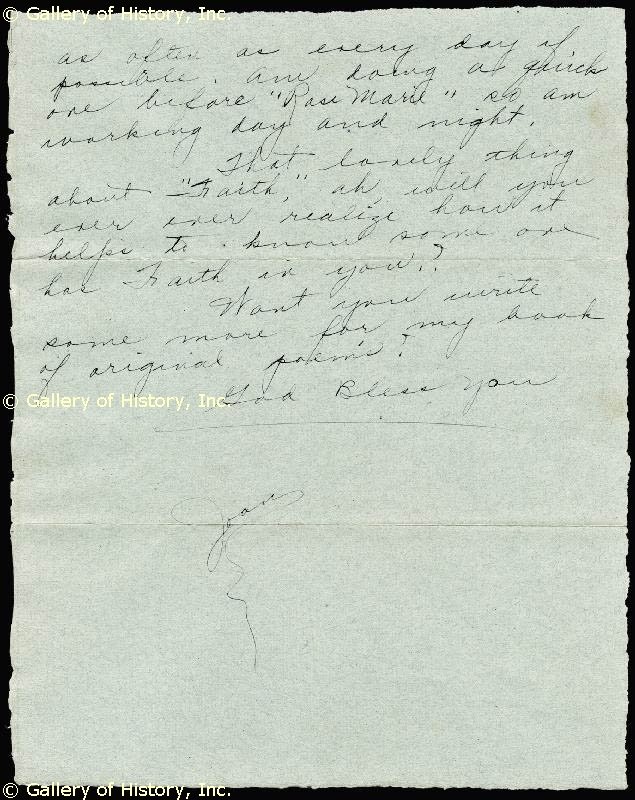 © Gallery of History, Inc.
© Gallery of History, Inc.
as often as every day if
possible. Am doing a quick
one before "Rose Marie" so am
working day and night.
That lovely thing
about "Faith," ah, will you
ever ever realize how it
helps to know some one
has Faith in you.?
Wont you write
some more for my book
of original poems?
© Gallery of History, Inc.
God Bless You
Joan
© Gallery of History, Inc.